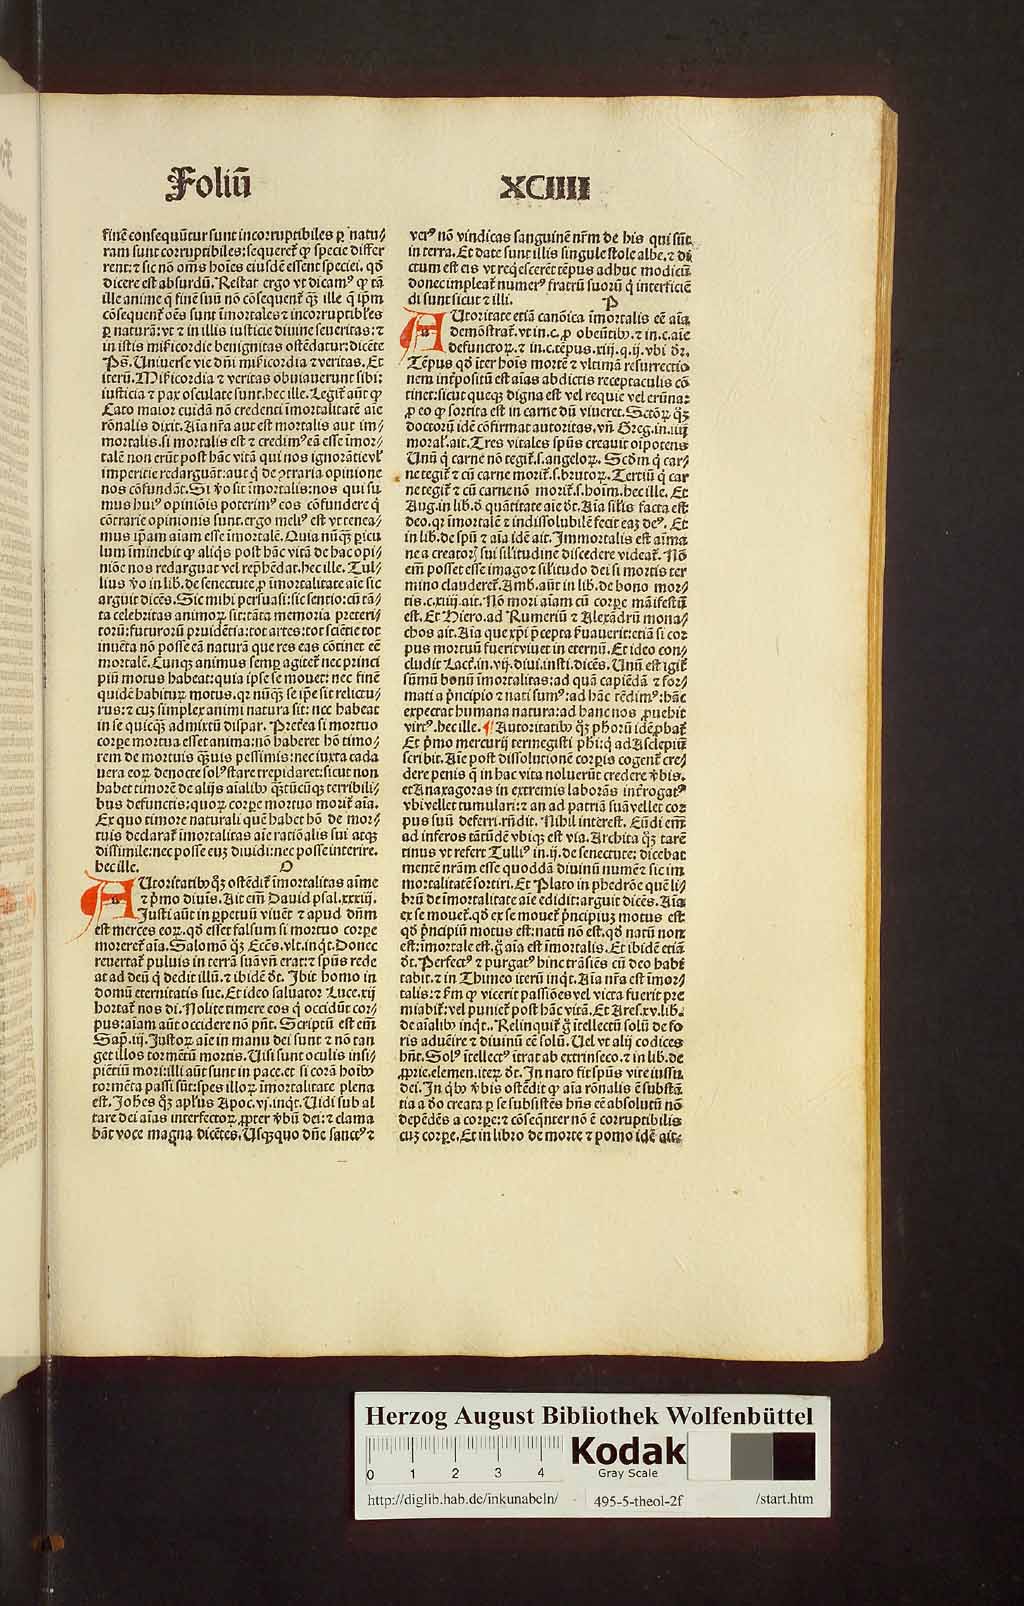 Foliū XCIIII
finē consequūtur sunt incorruptibiles ꝑ natu/
ram sunt corruptibiles: sequeret̄ ꝙ specie differ
rent: ⁊ sic nō om̄s hoīes eiusdē essent speciei. qđ
dicere est absurdū. Restat ergo vt dicamꝰ ꝙ tā
ille anime q̄ finē suū nō cōsequent̄ qꝫ ille q̄ ip̄m
cōsequent̄ oēs sunt īmortales ⁊ incorruptibles
ꝑ naturā: vt ⁊ in illis iusticie diuine seueritas: ⁊
in istis mīsericordie benignitas ostēdatur: dicēte
Ps. Uniuerse vie dn̄i mīsericordia ⁊ veritas. Et
iterū. Mīsericordia ⁊ veritas obuiauerunt sibi:
iusticia ⁊ pax osculate sunt. hec ille. Legit̄ aūt ꝙ
Cato maior cuidā nō credenti īmortalitatē aīe
rōnalis dixit. Aīa nr̄a aut est mortalis aut im/
mortalis. si mortalis est ⁊ credimꝰ eā esse imor/
talē non erūt post hāc vitā qui nos ignorātie vł
imperitie redarguāt: aut q̄ de ꝯtraria opinione
nos cōfundāt. Si v̄o sit īmortalis: nos qui su
mus huiꝰ opiniōis poterimꝰ eos cōfundere q̄
cōtrarie opinionis sunt. ergo meliꝰ est vt tenea/
mus ip̄am aīam esse īmortalē. Quia nūqꝫ ꝑicu
lum īminebit ꝙ aliq̄s post hāc vitā de hac opi/
niōe nos redarguat vel rep̄hēdat. hec ille. Tul/
lius v̄o in lib. de senectute ꝓ īmortalitate aīe sic
arguit dicēs. Sic mihi persuasi: sic sentio: cū tā/
ta celebritas animoꝝ sit: tāta memoria preteri/
torū: futurorū pruidētia: tot artes: tot sciētie tot
inuēta nō posse eā naturā que res eas cōtinet eē
mortalē. Cunqꝫ animus semꝑ agitet̄ nec princi
piū motus habeat: quia ipse se mouet: nec finē
quidē habiturꝰ motus. qꝛ nūqꝫ se ip̄e sit relictu/
rus: ⁊ cuꝫ simplex animi natura sit: nec habeat
in se quicqꝫ admixtū dispar. Pret̄ea si mortuo
corꝑe mortua esset anima: nō haberet hō timo/
rem de mortuis qꝫuis pessimis: nec iuxta cada
uera eoꝝ denocte solꝰ stare trepidaret: sicut non
habet timorē de alijs aīalibꝰ qꝫtūcūqꝫ terribili/
bus defunctis: quoꝝ corꝑe mortuo morit̄ aīa.
Ex quo timore naturali quē habet hō de mor/
tuis declarat̄ īmortalitas aīe ratiōalis sui atqꝫ
dissimile: nec posse euꝫ diuidi: nec posse interire.
hec ille. O
AUtoritatibꝰ qꝫ ostēdit̄ īmortalitas aīme
⁊ p̄mo diuīs. Ait em̄ Dauid psal. xxxiij.
Justi aūt in ꝑpetuū viuēt ⁊ apud dn̄m
est merces eoꝝ. qđ esset falsum si mortuo corꝑe
moreret̄ aīa. Salomō qꝫ Ecc̄s. vlt. inq̄t. Donec
reuertat̄ puluis in terrā suā vn̄ erat: ⁊ spūs rede
at ad deū q̄ dedit illū. ⁊ ibidē d̄t. Ibit homo in
domū eternitatis sue. Et ideo saluator Luce. xij
hortat̄ nos di. Nolite timere eos q̄ occidūt cor/
pus: aīam aūt occidere nō pn̄t. Scriptū est em̄
Sap̄. iij. Justoꝝ aīe in manu dei sunt ⁊ nō tan
get illos tormētū mortis. Uisi sunt oculis insi/
piētiū mori: illi aūt sunt in pace. et si corā hoībꝰ
tormēta passi sūt: spes illoꝝ īmortalitate plena
est. Johēs qꝫ apłus Apoc. vj. inq̄t. Uidi sub al
tare dei aīas interfectoꝝ ꝓpter v̄bū dei: ⁊ clama
bāt voce magna dicētes. Usqꝫquo dn̄e sanctꝰ ⁊
verꝰ nō vindicas sanguinē nr̄m de his qui sūt
in terra. Et date sunt illis singule stole albe. ⁊ di
ctum est eis vt req̄escerēt tēpus adhuc modicū
donec impleat̄ numerꝰ fratrū suorū q̄ interficiē
di sunt sicut ⁊ illi. P
AUtoritate etiā canōica īmortalis eē aīa
demōstrat̄. vt in. c. ꝓ obeūtibꝰ. ⁊ in. c. aīe
defunctoꝝ. ⁊ in. c. tēpus. xiij. q. ij. vbi dr̄.
Tēpus qđ īter hoīs mortē ⁊ vltimā resurrectio
nem int̄positū est aīas abdictis receptaculis cō
tinet: sicut queqꝫ digna est vel requie vel erūna:
ꝓ eo ꝙ sortita est in carne dū viueret. Sctōꝝ qꝫ
doctorū idē cōfirmat autoritas. vn̄ Greg. in. iiij
moral̄. ait. Tres vitales spūs creauit oīpotens
Unū q̄ carne nō tegit̄. s. angeloꝝ. Scđm q̄ car/
ne tegit̄ ⁊ cū carne morit̄. s. brutoꝝ. Tertiū q̄ car
ne tegit̄ ⁊ cū carne nō morit̄. s. hoīm. hec ille. Et
Aug. in lib. đ quātitate aīe d̄t. Aīa siłis facta est
deo. qꝛ īmortalē ⁊ indissolubilē fecit eaꝫ deꝰ. Et
in lib. de spū ⁊ aīa idē ait. Immortalis est aīma
ne a creatorꝭ sui siłitudine discedere videat̄. Nō
em̄ posset esse imago ⁊ siłitudo dei si mortis ter
mino clauderet̄. Amb. aūt in lib. de bono mor/
tis. c. xiiij. ait. Nō mori aīam cū corꝑe māifestū
est. Et Hiero. ad Rumeriū ⁊ Alexādrū mona/
chos ait. Aīa que xp̄i p̄cepta ẜuauerit: etiā si cor
pus mortuū fuerit viuet in eternū. Et ideo con/
cludit Lact̄. in. vij. diui. insti. dicēs. Unū est igit̄
sūmū bonū īmortalitas: ad quā capiēdā ⁊ for/
mati a p̄ncipio ⁊ nati sumꝰ: ad hāc tēdimꝰ: hāc
expectat humana natura: ad hanc nos ꝓuehit
virtꝰ. hec ille. ¶ Autoritatibꝰ qꝫ ph̄orū idē ꝓbat̄
Et p̄mo mercurij termegisti phī: q̄ ad Asclepiū
scribit. Aīe post dissolutionē corꝑis cogent̄ cre/
dere penis q̄ in hac vita noluerūt credere v̄bis.
et Anaxagoras in extremis laborās int̄rogatꝰ
vbi vellet tumulari: ⁊ an ad patriā suā vellet cor
pus suū deferri. rn̄dit. Nihil interest. Eūdi em̄
ad inferos tātūdē vbiqꝫ est via. Archita qꝫ tarē
tinus vt refert Tulliꝰ in. ij. de senectute: dicebat
mentē nr̄am esse quoddā diuinū numē ⁊ sic im
mortalitatē sortiri. Et Plato in phedrōe quē li/
brū de imortalitate aīe edidit: arguit dicēs. Aīa
ex se mouet̄. qđ ex se mouet̄ p̄ncipiuꝫ motus est
qđ p̄ncipiū motus est: natū nō est. qđ natū non
est: imortale est. g̊ aīa est īmortalis. Et ibidē etiā
d̄t. Perfectꝰ ⁊ purgatꝰ hinc trāsiēs cū deo habi
tabit. ⁊ in Thimeo iterū inq̄t. Aīa nr̄a est īmor/
talis: ⁊ ẜm ꝙ vicerit passiōes vel victa fuerit pre
miabit̄: vel puniet̄ post hāc vitā. Et Ares. xv. lib.
de aīalibꝰ inq̄t.. Relinquit̄ g̊ ītellectū solū de fo
ris aduēire ⁊ diuinū eē solū. Uel vt alij codices
hn̄t. Solꝰ ītellectꝰ ītrat ab extrinseco. ⁊ in lib. de
ꝓprie. elemen. iteꝝ d̄t. In nato fit spūs vite iussu
dei. In qbꝰ v̄bis ostēdit ꝙ aīa rōnalis ē substā
tia a đo creata ꝑ se subsistēs hn̄s eē absolutū nō
depēdēs a corꝑe: ⁊ cōseq̄nter nō ē corruptibilis
cuꝫ corꝑe. Et in libro de morte ⁊ pomo idē ait.
Herzog August Bibliothek Wolfenbüttel
0 1 2 3 4
Kodak
Gray Scale
http://diglib.hab.de/inkunabeln/ 495-5-theol-2f /start.htm